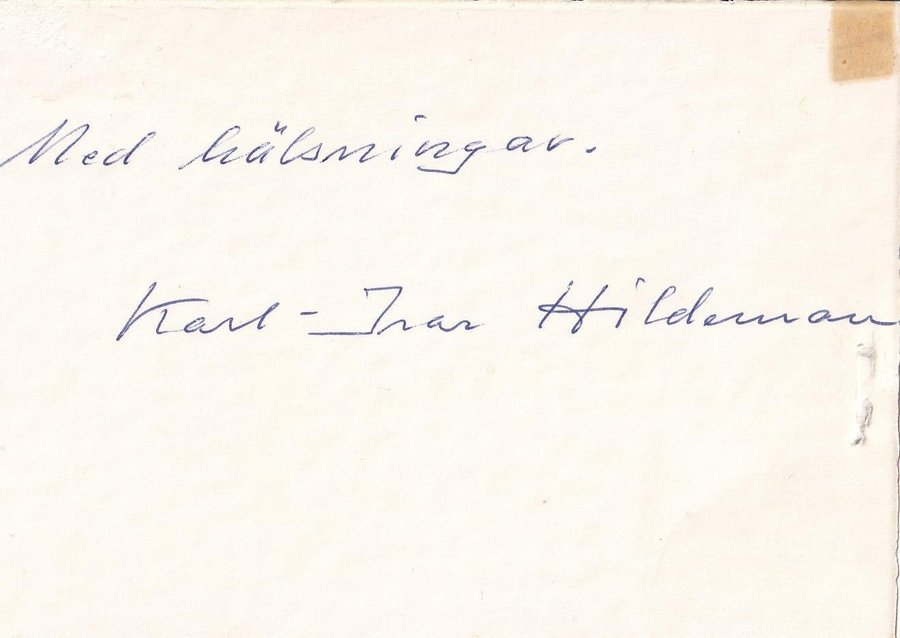 Med hälsningar.
Karl-Ivar Hildeman